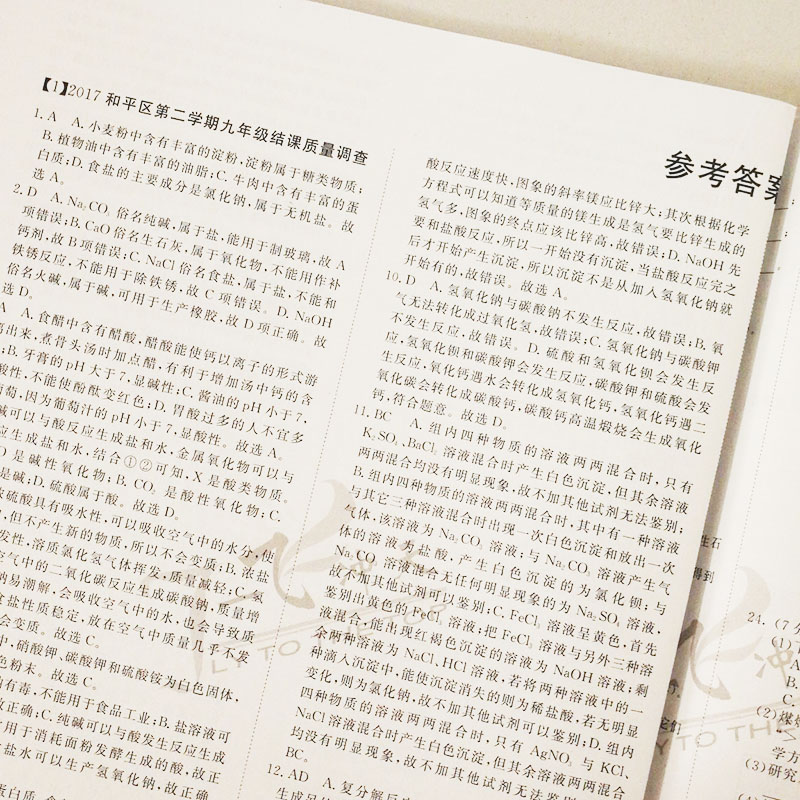 参考答案
【1】2017 和平区第二学期九年级结课质量调查
1. A　A. 小麦粉中含有丰富的淀粉,淀粉属于糖类物质;
B. 植物油中含有丰富的油脂;C. 牛肉中含有丰富的蛋
白质;D. 食盐的主要成分是氯化钠,属于无机盐。故
选 A。
2. D　A. Na₂CO₃ 俗名纯碱,属于盐,能用于制玻璃,故 A
项错误;B. CaO 俗名生石灰,属于氧化物,不能用作补
钙剂,故 B 项错误;C. NaCl 俗名食盐,属于盐,不能和
铁锈反应,不能用于除铁锈,故 C 项错误。D. NaOH
俗名火碱,属于碱,可用于生产橡胶,故 D 项正确。故
选 D。
A　A. 食醋中含有醋酸,醋酸能使钙以离子的形式游
离出来,煮骨头汤时加点醋,有利于增加汤中钙的含
;B. 牙膏的 pH 大于 7,显碱性;C. 酱油的 pH 小于 7,
酸性,不能使酚酞变红色;D. 胃酸过多的人不宜多
葡萄,因为葡萄汁的 pH 小于 7,显酸性。故选 A。
碱可以与酸反应生成盐和水,金属氧化物可以与
应生成盐和水,结合①②可知,X 是酸类物质。
O 是碱性氧化物;B. CO₂ 是酸性氧化物;C.
是碱;D. 硫酸属于酸。故选 D。
浓硫酸具有吸水性,可以吸收空气中的水分,使
,但不产生新的物质,所以不会变质;B. 浓盐
发性,溶质氯化氢气体挥发,质量减轻;C. 氢
空气中的二氧化碳反应生成碳酸钠,质量增
钠易潮解,会吸收空气中的水,也会导致质
食盐性质稳定,放在空气中质量几乎不发
会变质。故选 C。
中,硝酸钾、碳酸钾和硫酸铵为白色固体,
色粉末。故选 C。
由有毒,不能用于食品工业;B. 盐溶液可
故正确;C. 纯碱可以与酸发生反应生成
常用于消耗面粉发酵生成的酸,故正
食盐水可以生产氢氧化钠,故正确。
酸反应速度快,图象的斜率镁应比锌大;其次根据化学
方程式可以知道等质量的镁生成是氢气要比锌生成的
氢气多,图象的终点应该比锌高,故错误;D. NaOH 先
要和盐酸反应,所以一开始没有沉淀,当盐酸反应完之
后才开始产生沉淀,所以沉淀不是从加入氢氧化钠就
开始有的,故错误。故选 A。
10. D　A. 氢氧化钠与碳酸钠不发生反应,故错误;B. 氧
气无法转化成过氧化氢,故错误;C. 氢氧化钠与碳酸钾
不发生反应,故错误。D. 硫酸和氢氧化钡会发生反
应,氢氧化钡和碳酸钾会发生反应,碳酸钾和硫酸会发
生反应,氧化钙遇水会转化成氢氧化钙,氢氧化钙遇二
氧化碳会转化成碳酸钙,碳酸钙高温煅烧会生成氧化
钙,符合题意。故选 D。
11. BC　A. 组内四种物质的溶液两两混合时,只有
K₂SO₄、BaCl₂ 溶液混合时产生白色沉淀,但其余溶液
两两混合均没有明显现象,故不加其他试剂无法鉴别;
B. 组内四种物质的溶液两两混合时,其中有一种溶液
与其它三种溶液混合时出现一次白色沉淀和放出一次
气体,该溶液为 Na₂CO₃ 溶液;与 Na₂CO₃ 溶液产生气
体的溶液为盐酸,产生白色沉淀的为氯化钡;与
Na₂CO₃ 溶液混合无任何明显现象的为 Na₂SO₄ 溶液,
故不加其他试剂可以鉴别;C. FeCl₃ 溶液呈黄色,首先
鉴别出黄色的 FeCl₃ 溶液;把 FeCl₃ 溶液与另外三种溶
液混合,能出现红褐色沉淀的溶液为 NaOH 溶液;剩
余两种溶液为 NaCl、HCl 溶液,若将两种溶液中的一
种滴入沉淀中,能使沉淀消失的则为稀盐酸,若无明显
变化,则为氯化钠,故不加其他试剂可以鉴别;D. 组内
四种物质的溶液两两混合时,只有 AgNO₃ 与 KCl、
NaCl 溶液混合时产生白色沉淀,但其余溶液两两混合
均没有明显现象,故不加其他试剂无法鉴别
BC。
12. AD　A. 复分解反
生石
得到
24. (7 分
(1)
A
B.
C.
(2) 煤
学方
(3) 研究